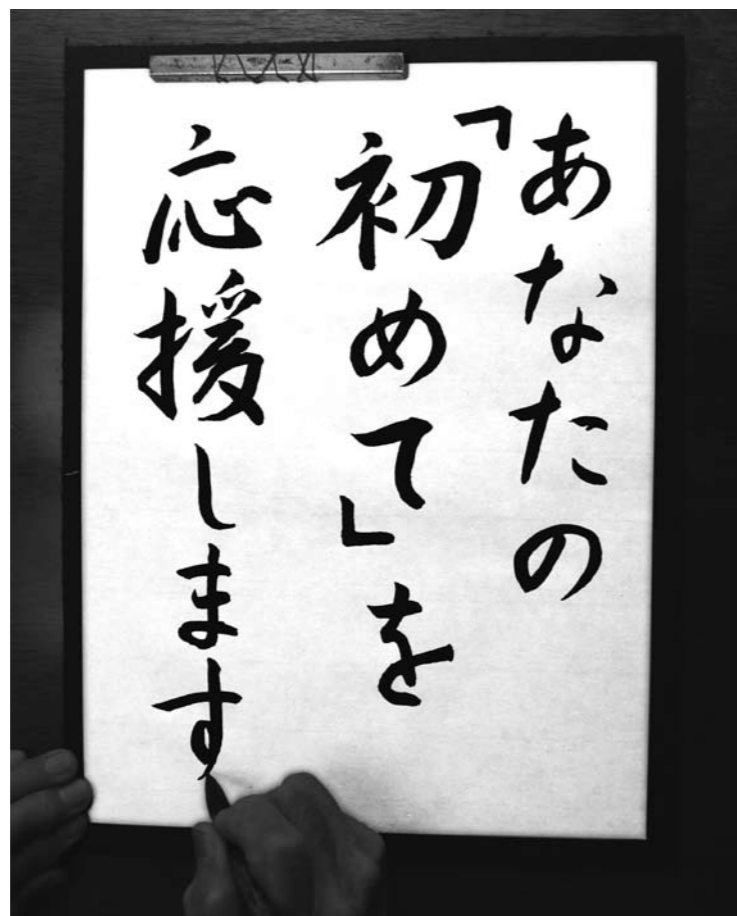 あなたの
「初めて」を
応援します